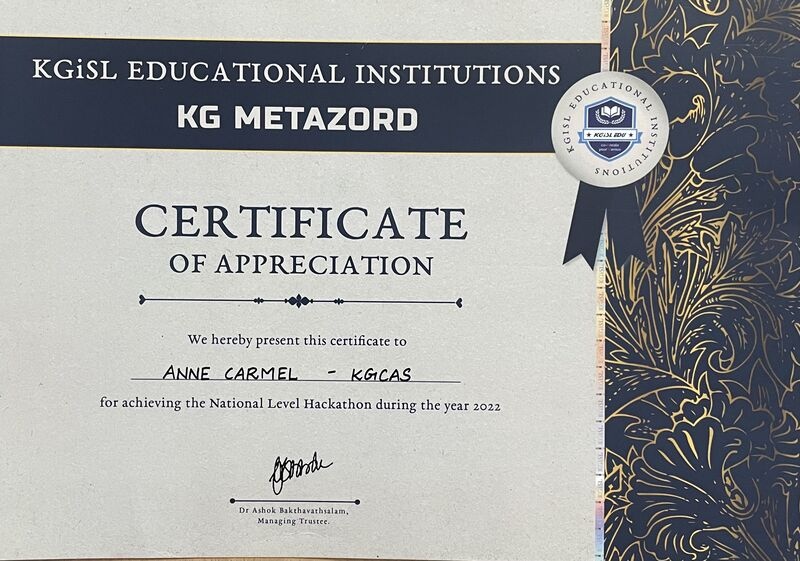 KGiSL EDUCATIONAL INSTITUTIONS
KG METAZORD
KGISL EDUCATIONAL INSTITUTIONS
KGiSL EDU
CERTIFICATE
OF APPRECIATION
We hereby present this certificate to
ANNE CARMEL - KGCAS
for achieving the National Level Hackathon during the year 2022
Dr Ashok Bakthavathsalam,
Managing Trustee.